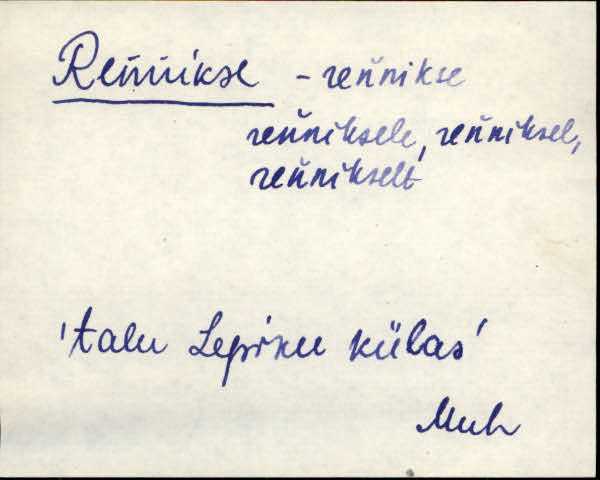 Reňnikse - reňnikse
reňniksele, reňniksel,
reňnikselt
'talu Lepiku külas'
Muh